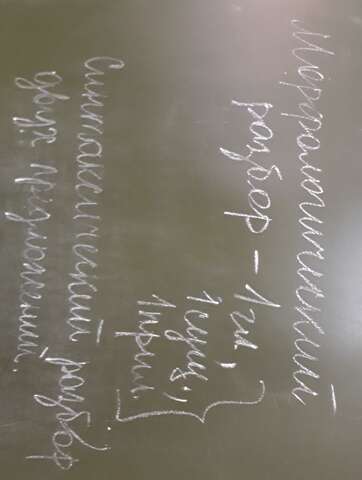 Морфологический
разбер - 1 гл.,
1 сущ.,
1 прил.
Синтаксический разбор
двух предложений.